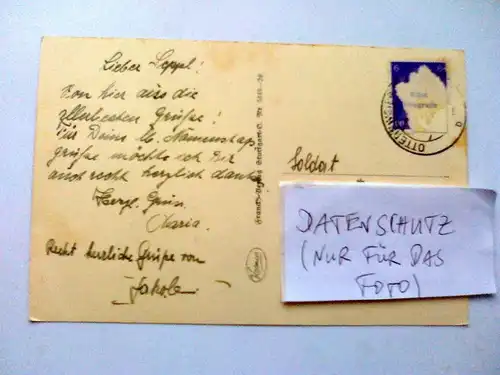 Lieber Seppl!
Von hier aus die
allerbesten Grüße!
Für Deine lb. Namenstags
grüße möchte ich Dir
auch recht herzlich danken
Herzl. Grüße
Maria.
Recht herzliche Grüße von
Jakob
Soldat
6
6
DATENSCHUTZ
(NUR FÜR DAS
FOTO)